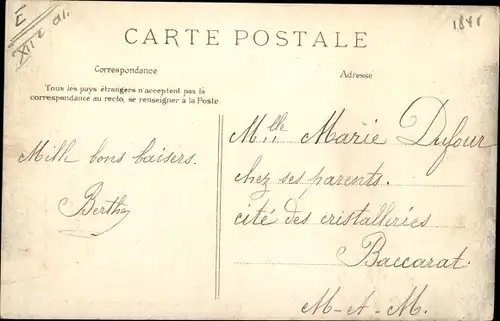 E
XII e a1.
1841
CARTE POSTALE
Correspondance
Adresse
Tous les pays étrangers n'acceptent pas la
correspondance au recto, se renseigner à la Poste.
Mille bons baisers.
Berthe
Mlle Marie Dufour
chez ses parents.
cité des cristalleries
Baccarat.
M-et-M.